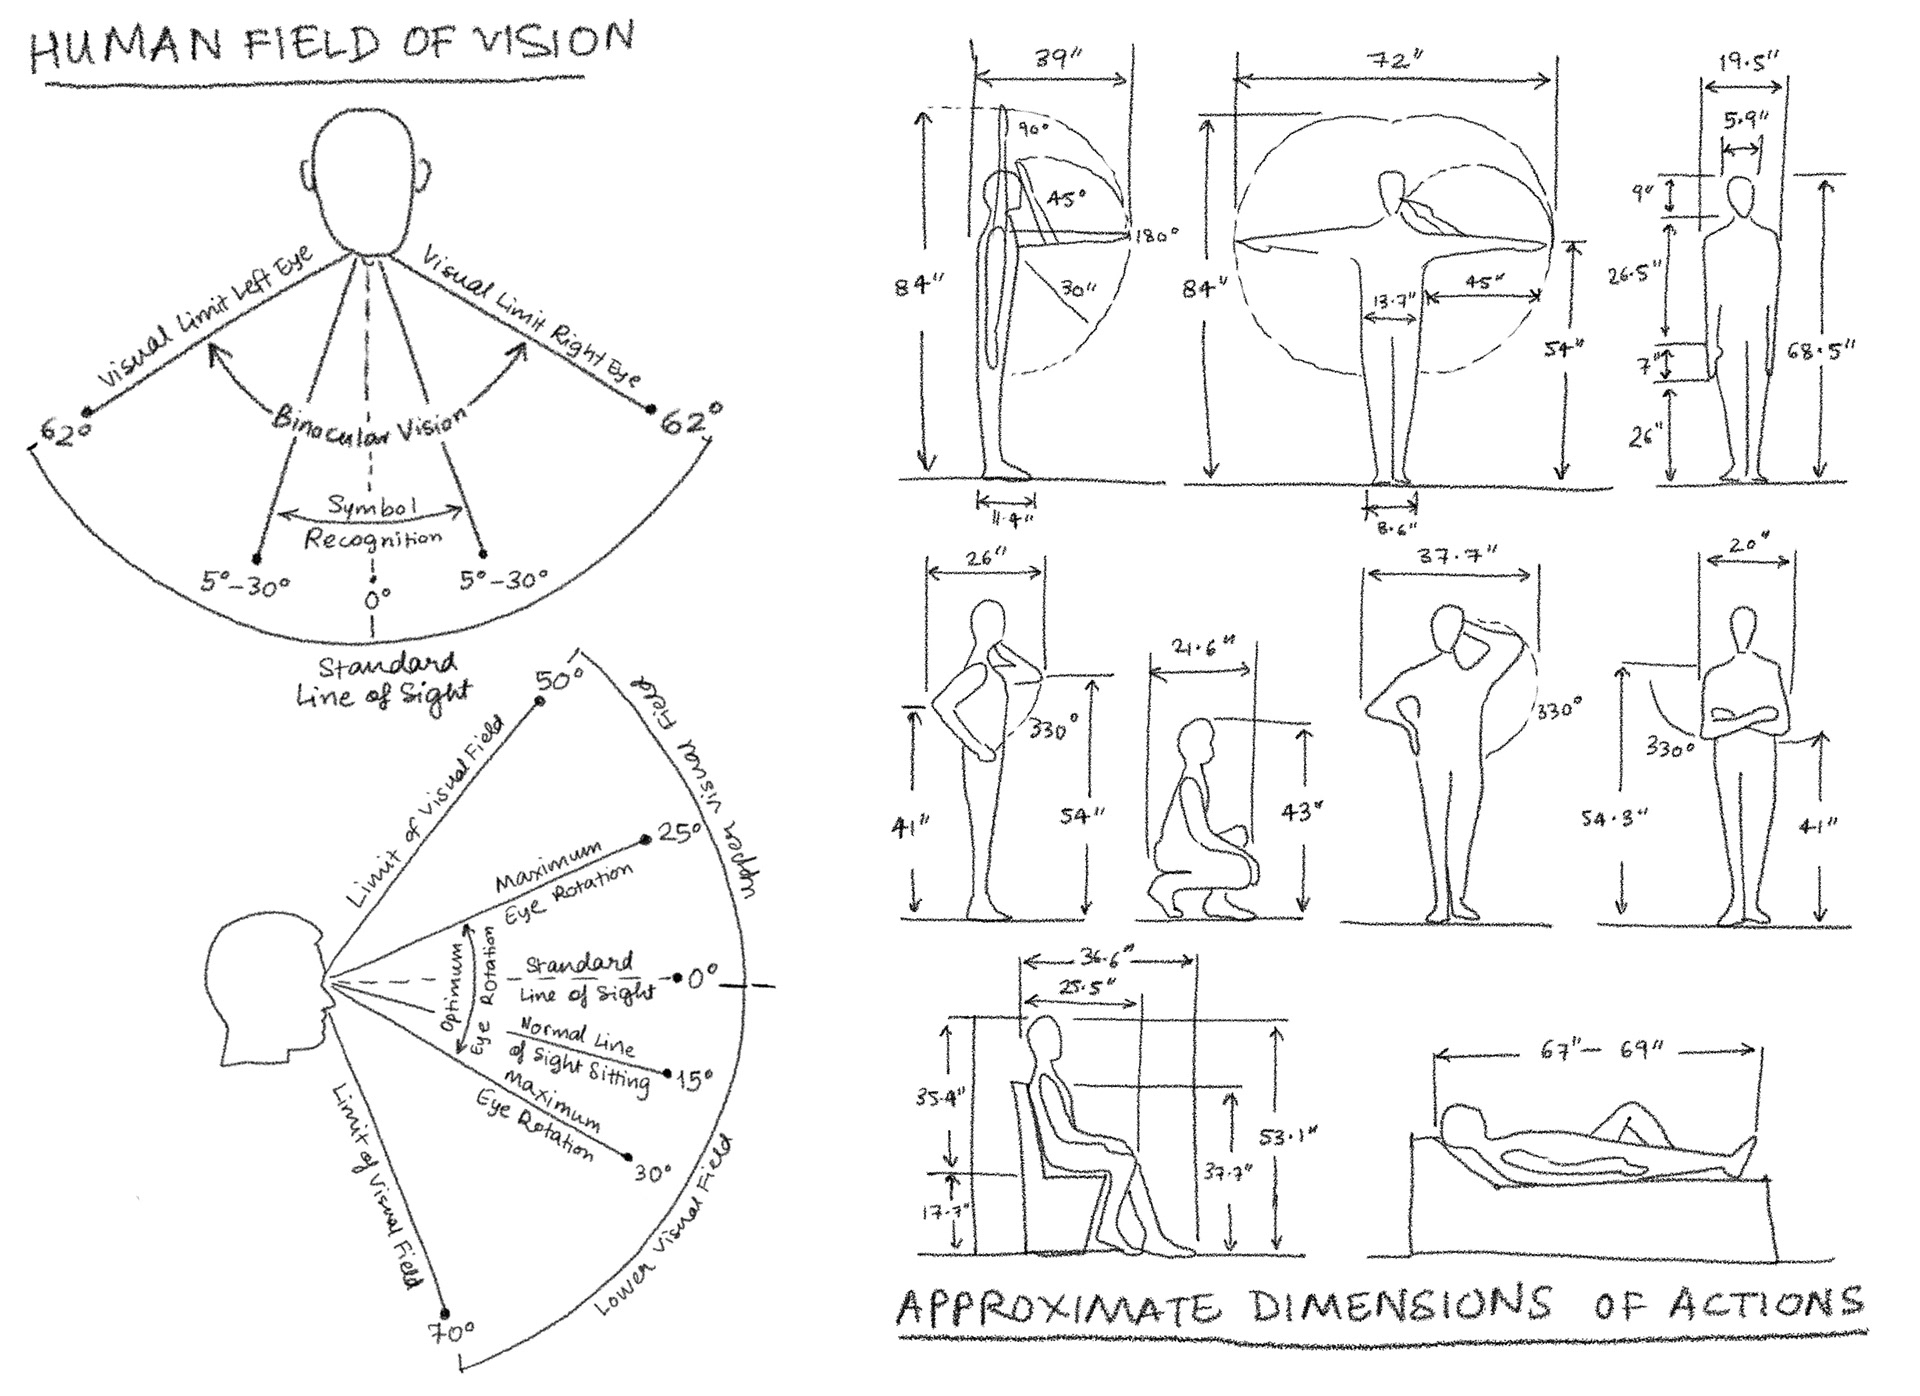 HUMAN FIELD OF VISION
Visual Limit Left Eye
Visual Limit Right Eye
62°
62°
Binocular Vision
Symbol
Recognition
5°-30°
5°-30°
0°
Standard
Line of Sight
50°
Limit of Visual Field
Upper Visual Field
25°
Maximum
Eye Rotation
Optimum
Eye Rotation
Standard
Line of Sight
0°
Normal Line
of Sight Sitting
15°
Maximum
Eye Rotation
30°
Limit of Visual Field
70°
Lower Visual Field
39"
90°
45°
180°
30"
84"
11.4"
72"
84"
13.7"
45"
54"
8.6"
19.5"
5.9"
9"
26.5"
7"
26"
68.5"
26"
330°
41"
54"
21.6"
43"
37.7"
330°
20"
54.3"
330°
41"
36.6"
25.5"
35.4"
17.7"
37.7"
53.1"
67"- 69"
APPROXIMATE DIMENSIONS OF ACTIONS